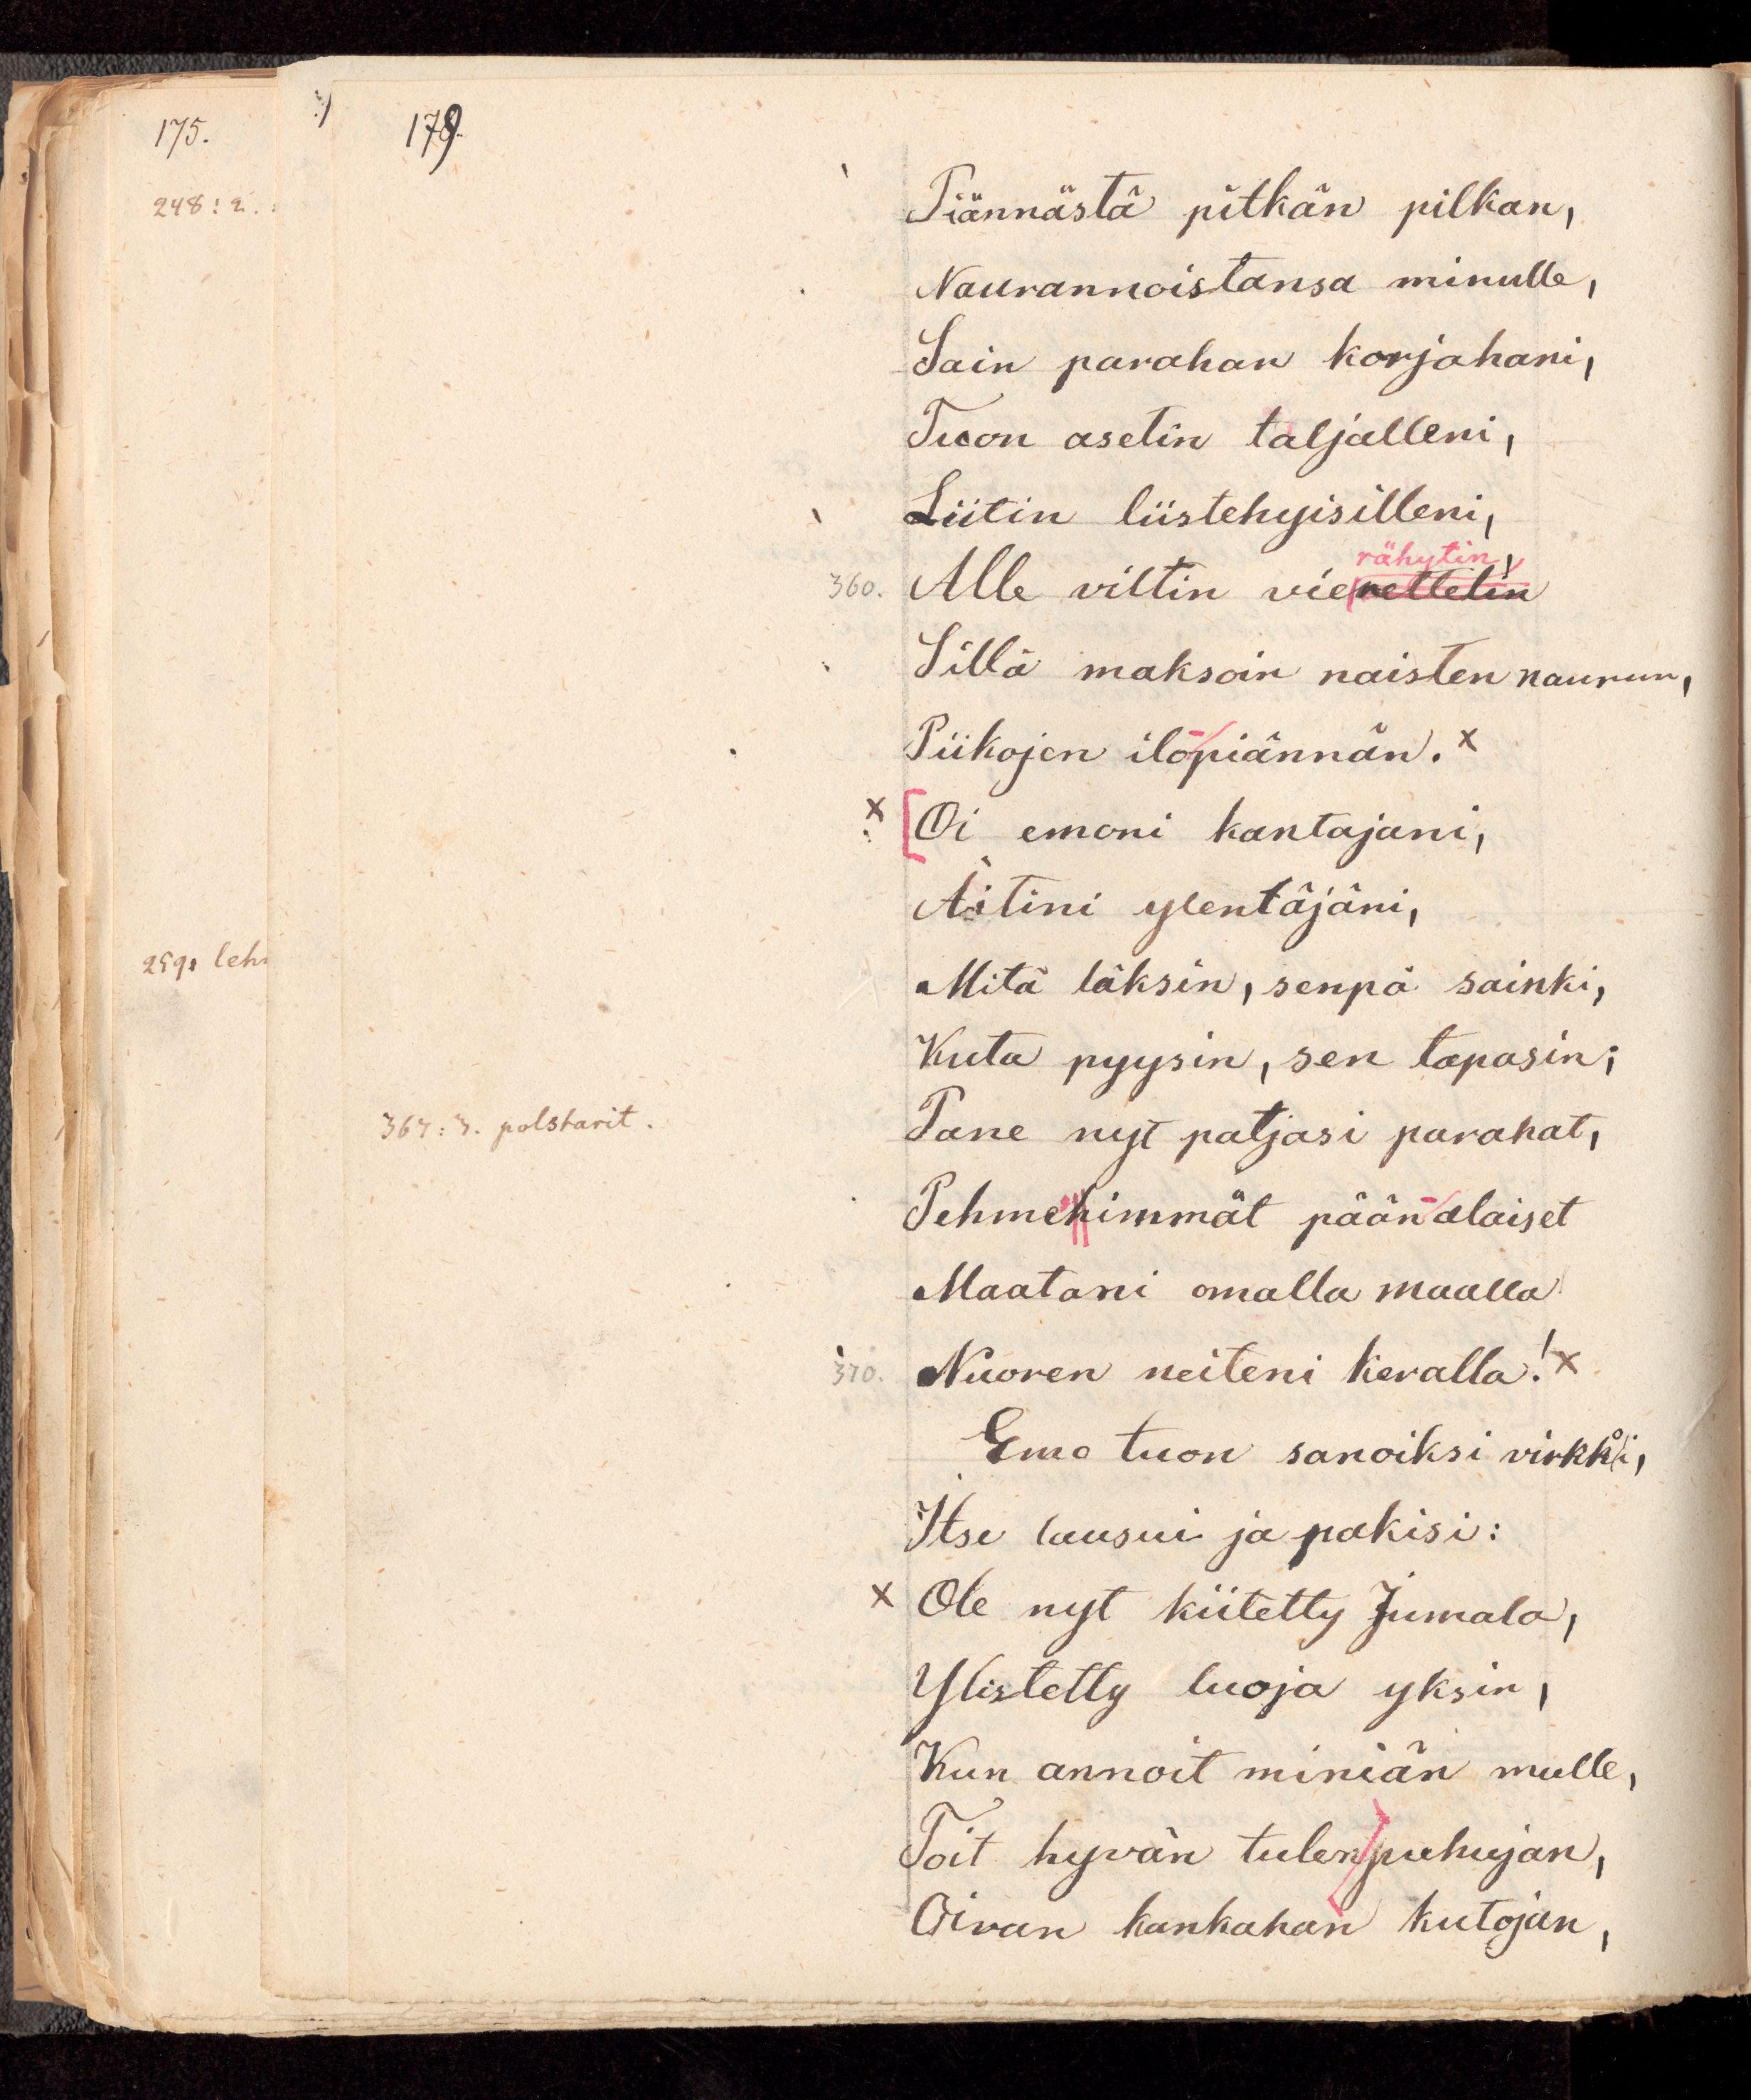 175.
248:2.
lehi
179
367:3. polstarit.
Piännästä pitkän pilkan,
Naurannoistansa minulle,
Sain parahan korjahani,
Tuon asetin taljalleni,
Liitin liistehyisilleni,
rähytin,
360. Alle viltin vierettelin
Sillä maksoin naisten naurun,
Piikojen ilopiännän. x
x [Oi emoni kantajani,
Äitini ylentäjäni,
Mitä läksin, senpä sainki,
Kuta pyysin, sen tapasin;
Pane nyt patjasi parahat,
Pehmehimmät pään-alaiset
Maatani omalla maalla
370. Nuoren neiteni keralla! x
Emo tuon sanoiksi virkki,
Itse lausui ja pakisi:
x Ole nyt kiitetty Jumala,
Ylistetty luoja yksin,
Kun annoit miniän mulle,
Toit hyvän tulen puhujan,
Oivan kankahan kutojan,